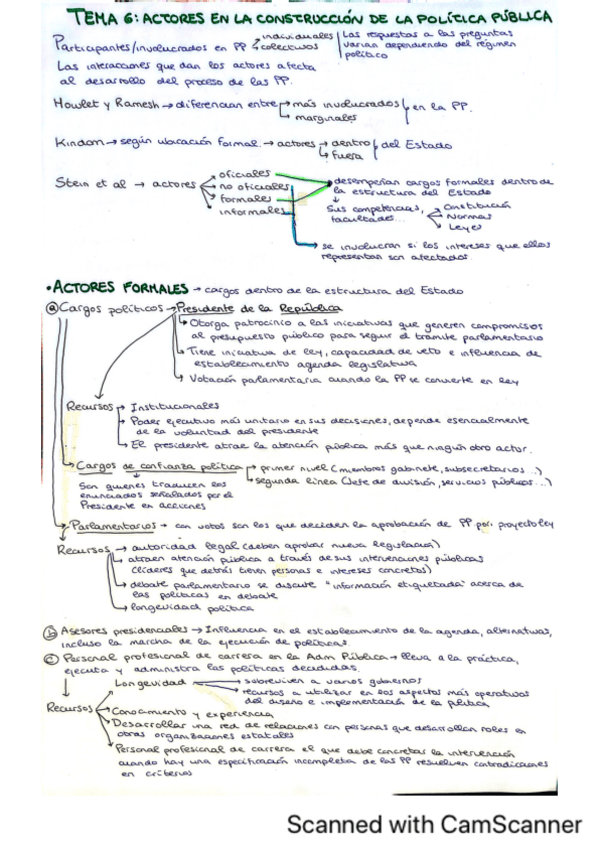 TEMA 6: ACTORES EN LA CONSTRUCCIÓN DE LA POLÍTICA PÚBLICA
Participantes/involucrados en PP individuales colectivos
Las respuestas a las preguntas varían dependiendo del régimen político
Las interacciones que dan los actores afecta
al desarrollo del proceso de las PP.
Howlet y Ramesh → diferencian entre más involucrados marginales en la PP.
Kindom → según ubicación formal → actores → dentro fuera del Estado
Stein et al → actores
oficiales
no oficiales
formales
informales
desempeñan cargos formales dentro de
la estructura del Estado
Sus competencias, facultades...
Constitución
Normas
Leyes
se involucran si los intereses que ellos
representan son afectados
• ACTORES FORMALES → cargos dentro de la estructura del Estado
ⓐ Cargos políticos → Presidente de la República
Otorga patrocinio a las iniciativas que generen compromisos
al presupuesto público para seguir el trámite parlamentario
Tiene iniciativa de ley, capacidad de veto e influencia de
establecimiento agenda legislativa
Votación parlamentaria cuando la PP se convierte en ley
Recursos → Institucionales
Poder ejecutivo más unitario en sus decisiones, depende esencialmente
de la voluntad del presidente
El presidente atrae la atención pública más que ningún otro actor.
Cargos de confianza política
primer nivel (miembros gabinete, subsecretarios...)
segunda línea (Jefe de división, servicios públicos...)
Son quienes traducen los
enunciados señalados por el
Presidente en acciones
Parlamentarios → con votos son los que deciden la aprobación de PP por proyecto ley
Recursos → autoridad legal (deben aprobar nueva legislación)
atraen atención pública a través de sus intervenciones públicas
(líderes que detrás tienen personas e intereses concretos)
debate parlamentario se discute "información etiquetada" acerca de
las políticas en debate
longevidad política
ⓑ Asesores presidenciales → Influencia en el establecimiento de la agenda, alternativas,
incluso la marcha de la ejecución de políticas.
ⓒ Personal profesional de carrera en la Adm Pública → lleva a la práctica,
ejecuta y administra las políticas decididas.
Recursos
Longevidad
sobreviven a varios gobiernos
recursos a utilizar en los aspectos más operativos
del diseño e implementación de la política
Conocimiento y experiencia
Desarrollar una red de relaciones con personas que desarrollan roles en
otras organizaciones estatales
Personal profesional de carrera el que debe concretar la intervención
cuando hay una especificación incompleta de las PP resuelven contradicciones
en criterios
Scanned with CamScanner